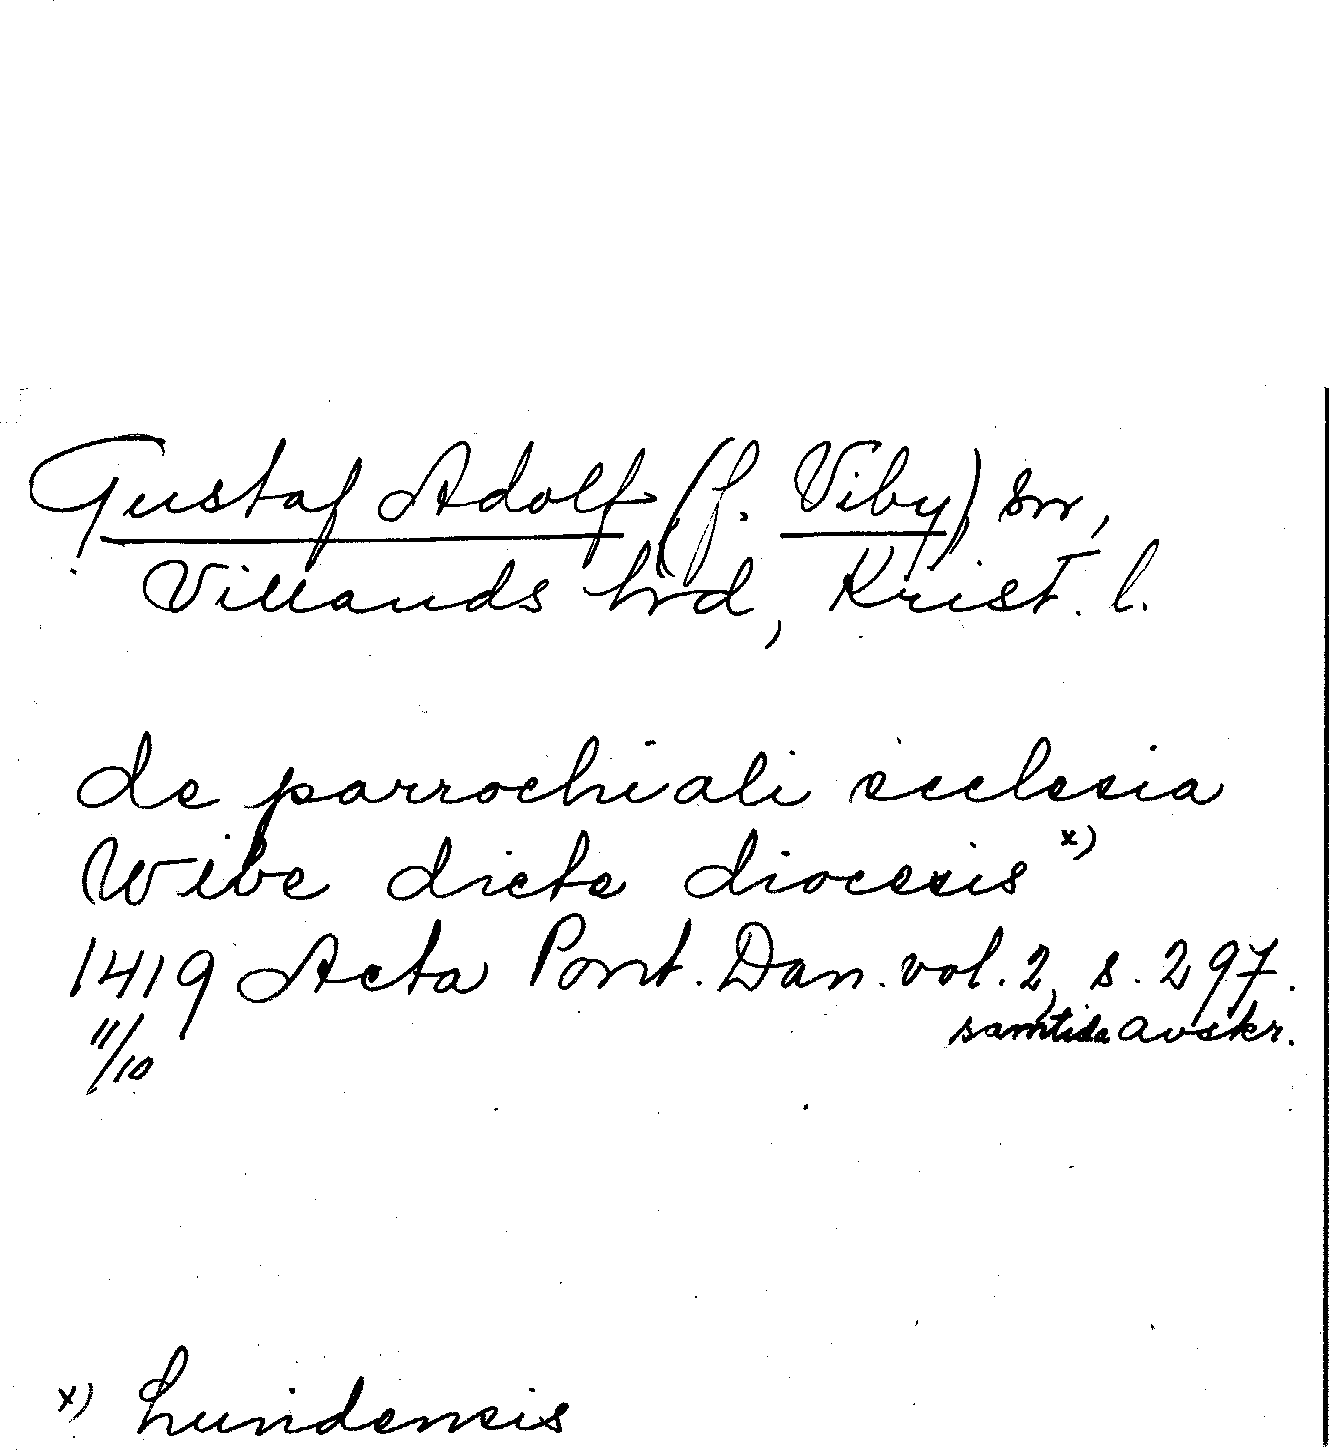 Gustaf Adolf (f. Viby) sn,
Villands hrd, Krist. l.
de parrochiali ecclesia
Wibe dicte diocesis x)
1419 Acta Pont. Dan. vol. 2, s. 297.
11/10 samtida avskr.
x) Lundensis